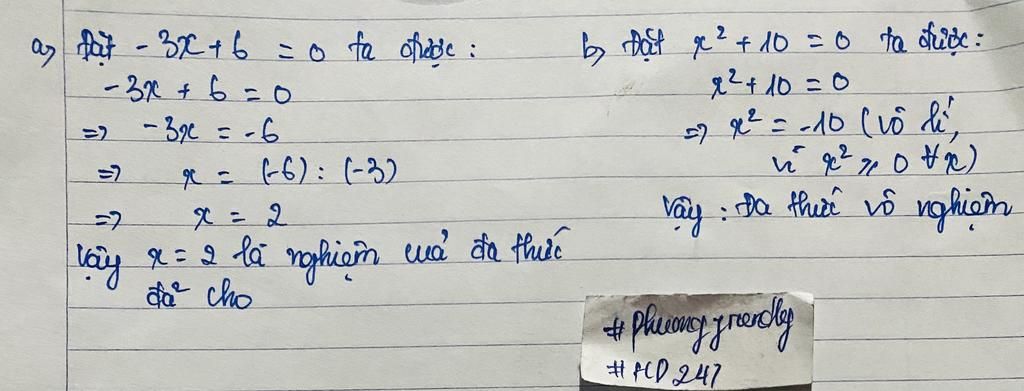 a) Đặt -3x + 6 = 0 ta được:
-3x + 6 = 0
=> -3x = -6
=> x = (-6) : (-3)
=> x = 2
Vậy x = 2 là nghiệm của đa thức
đã cho
b) Đặt x² + 10 = 0 ta được:
x² + 10 = 0
=> x² = -10 (vô lí,
vì x² ⩾ 0 ∀x)
Vậy: Đa thức vô nghiệm
#Phuongfriendly
#FCD247